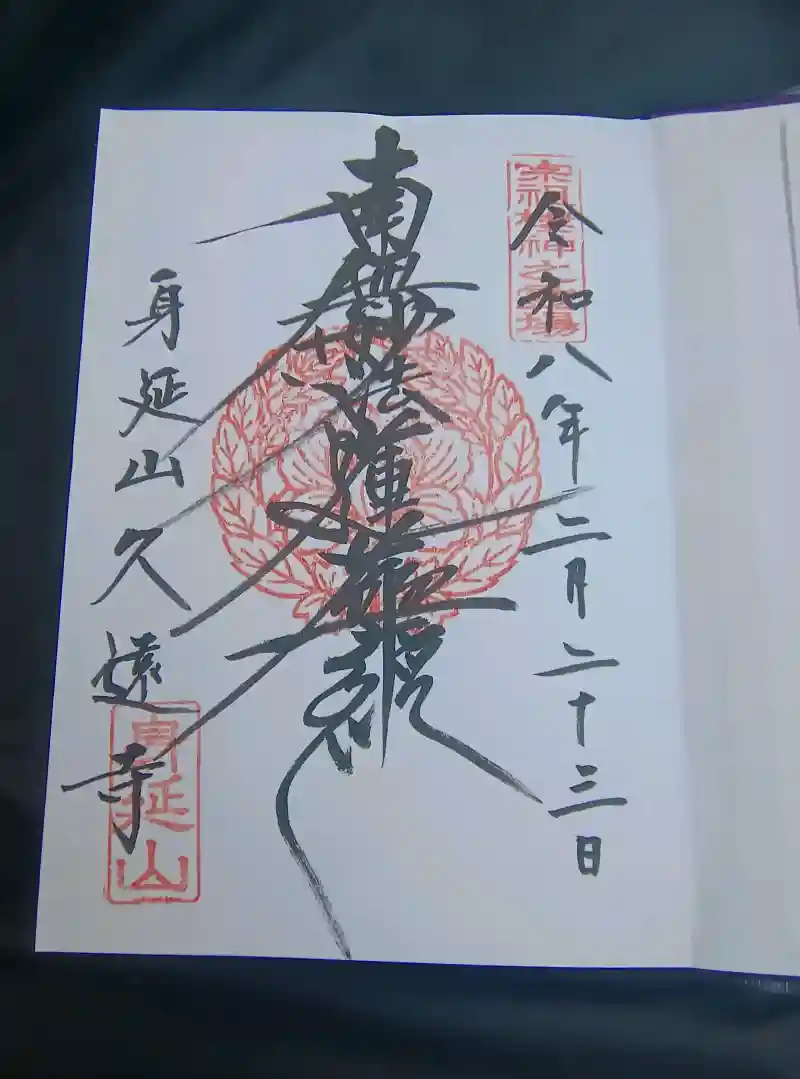 令和八年二月二十三日
宗祖棲神之霊場
南無妙法蓮華経
身延山久遠寺
身延山